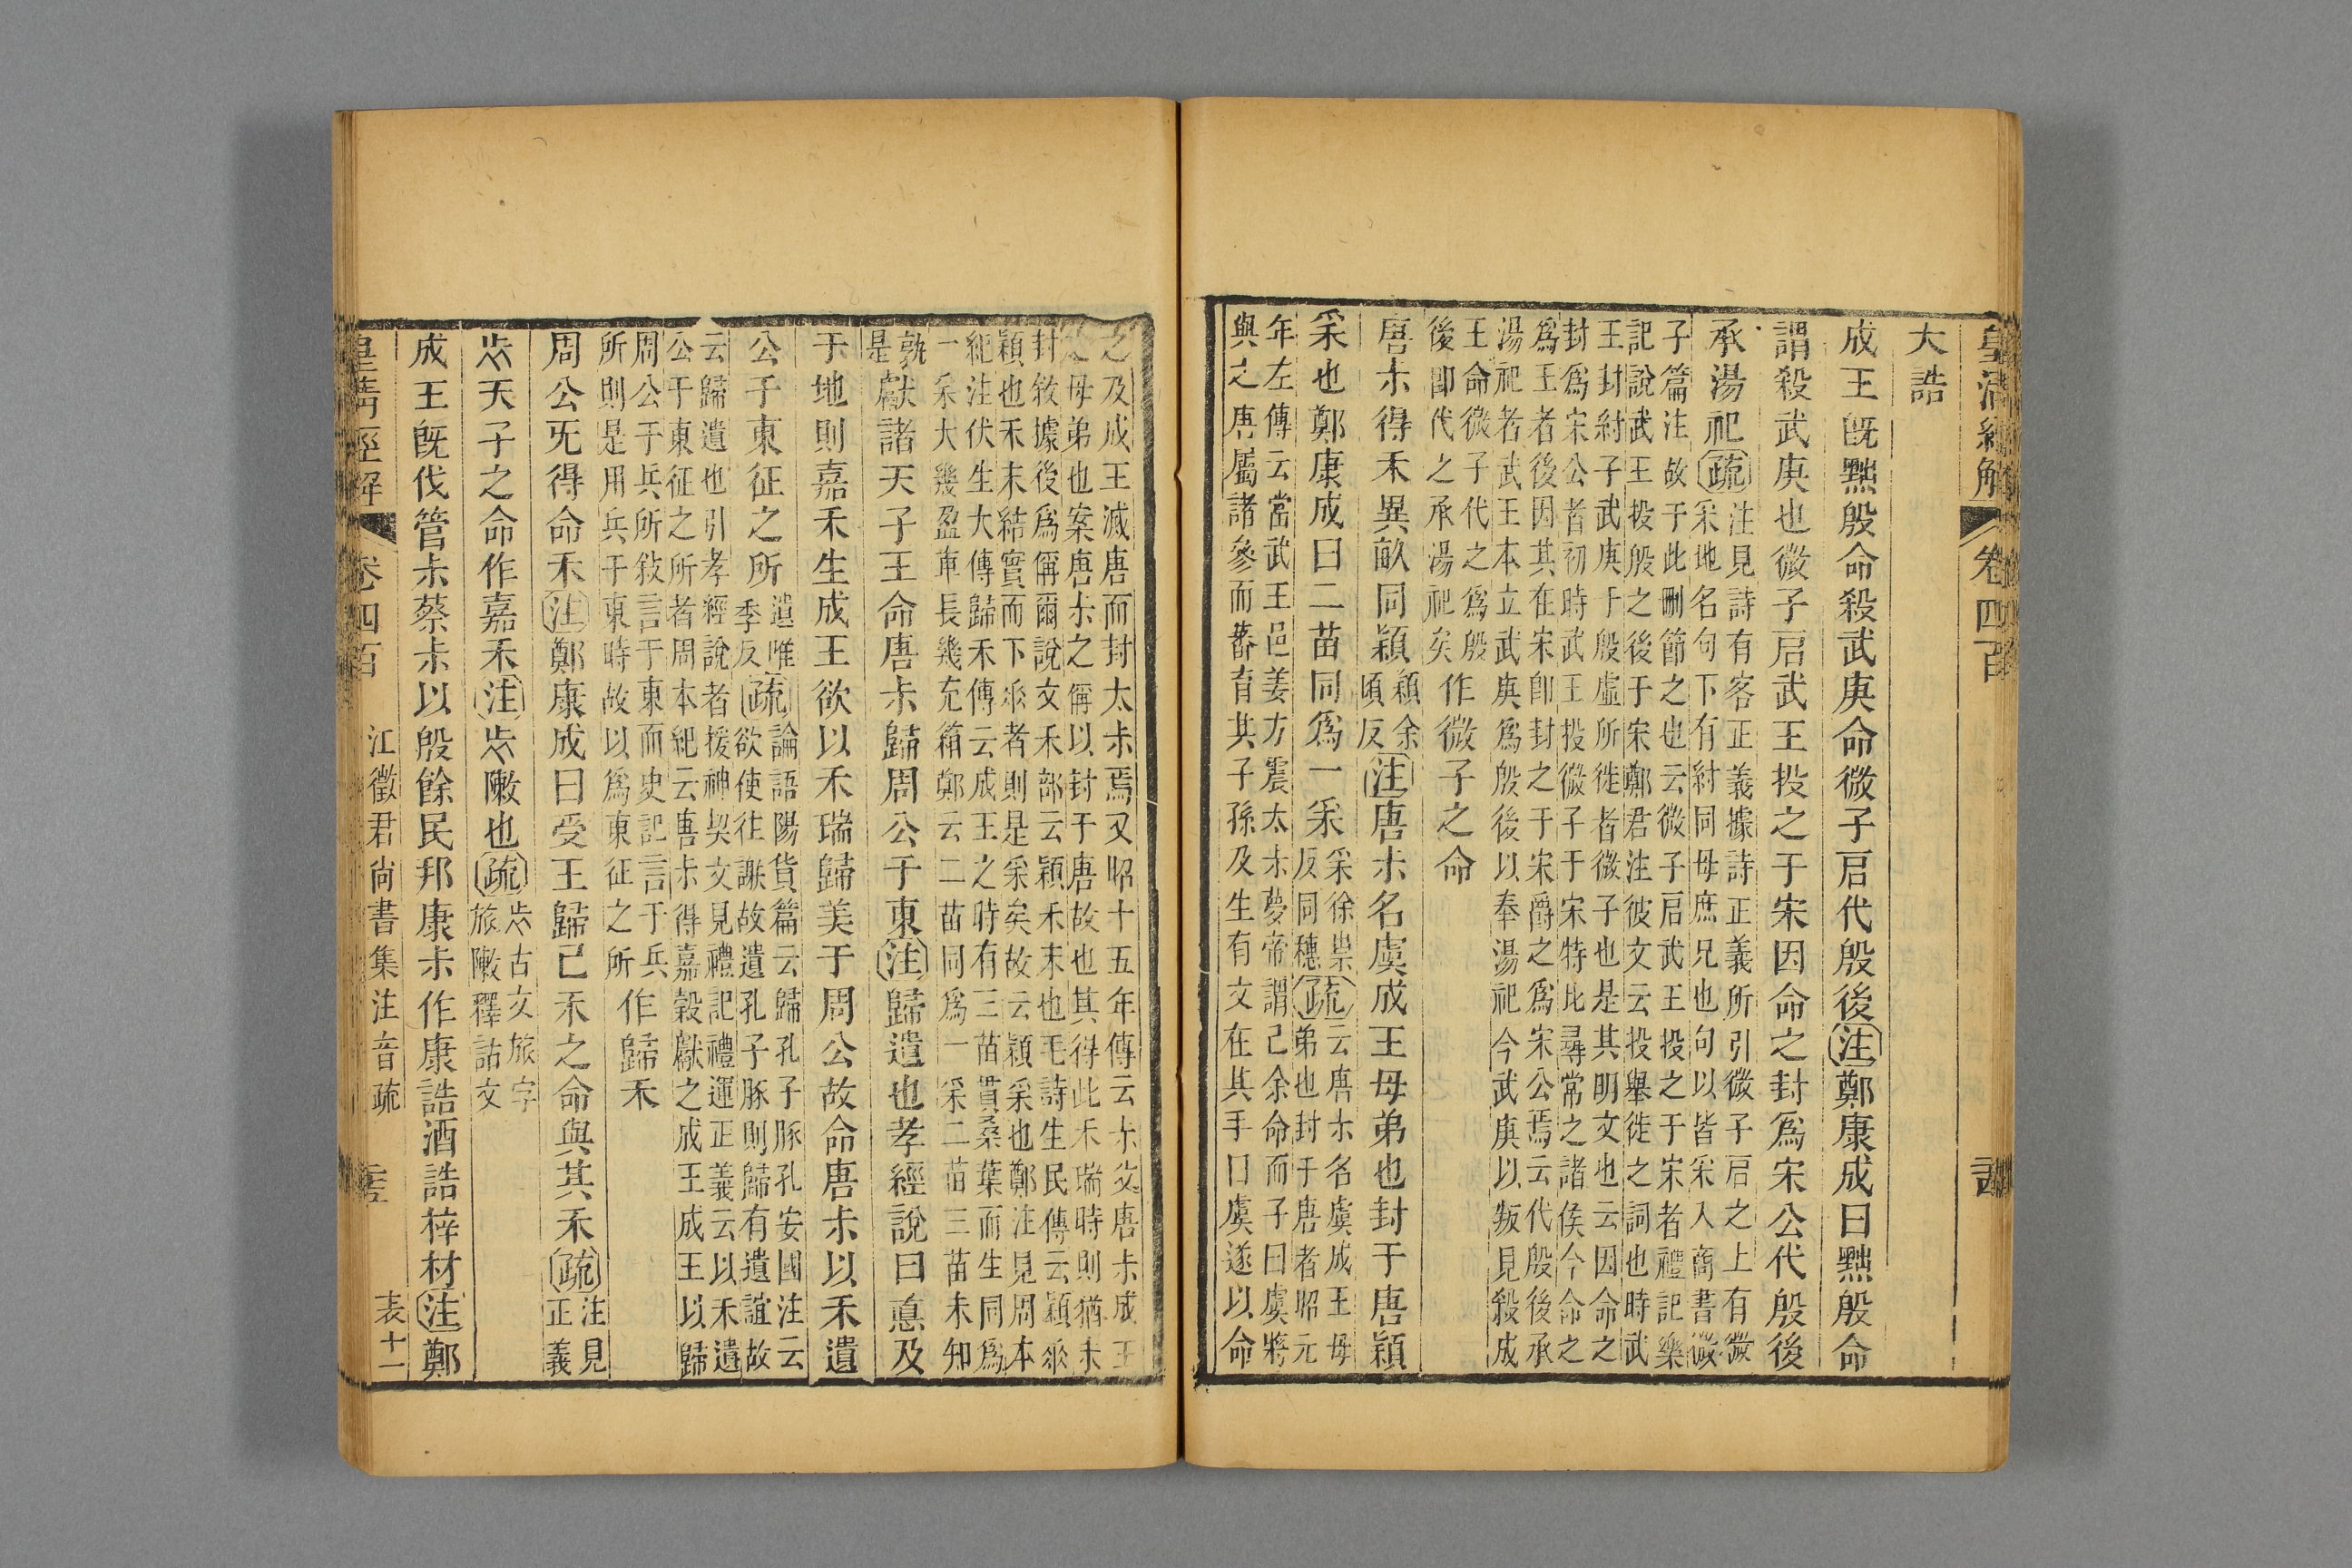 皇清經解 卷四百
大誥
成王旣黜殷命殺武庚命微子启代殷後注鄭康成曰黜殷命
謂殺武庚也微子启武王投之于宋因命之封爲宋公代殷後
承湯祀疏
注見詩有客正義據詩正義所引微子启之上有微
采地名句下有紂同母庶兄也句以皆采入商書微
子篇注故于此刪節之也云微子启武王投之于宋者禮記樂
記說武王投殷之後于宋鄭君注彼文云投舉徙之詞也時武
王封紂子武庚于殷虛所徙者微子也是其明文也云因命之
封爲宋公者初時武王投微子于宋特比尋常之諸侯今命之
爲王者後因其在宋卽封之于宋爵之爲宋公焉云代殷後承
湯祀者武王本立武庚爲殷後以奉湯祀今武庚以叛見殺成
王命微子代之爲殷
後卽代之承湯祀矣
作微子之命
唐尗得禾異畝同穎
穎余
頃反
注唐尗名虞成王母弟也封于唐穎
采也鄭康成曰二苗同爲一采
采徐祟
反同穗
疏
云唐尗名虞成王母
弟也封于唐者昭元
年左傳云當武王邑姜方震太尗夢帝謂己余命而子曰虞將
與之唐屬諸參而蕃育其子孫及生有文在其手曰虞遂以命
之及成王滅唐而封太尗焉又昭十五年傳云尗父唐尗成王
之母弟也案唐尗之偁以封于唐故也其得此禾瑞時則猶未
封敘據後爲偁爾說文禾部云穎禾末也毛詩生民傳云穎𠂹
穎也禾末結實而下𠂹者則是采矣故云穎采也鄭注見周本
紀注伏生大傳歸禾傳云成王之時有三苗貫桑葉而生同爲
一采大幾盈車長幾充箱鄭云二苗同爲一采二苗三苗未知
孰
是
獻諸天子王命唐尗歸周公于東注歸遺也孝經說曰悳及
于地則嘉禾生成王欲以禾瑞歸美于周公故命唐尗以禾遺
公于東征之所
遺唯
季反
疏
論語陽貨篇云歸孔子豚孔安國注云
欲使往謝故遺孔子豚則歸有遺誼故
云歸遺也引孝經說者援神契文見禮記禮運正義云以禾遺
公于東征之所者周本紀云唐尗得嘉穀獻之成王成王以歸
周公于兵所敘言于東而史記言于兵
所則是用兵于東時故以爲東征之所
作歸禾
周公旡得命禾注鄭康成曰受王歸己禾之命與其禾疏
注見
正義
𣥏天子之命作嘉禾注𣥏敶也疏
𣥏古文旅字
旅敶釋詁文
成王旣伐管尗蔡尗以殷餘民邦康尗作康誥酒誥梓材注鄭
皇清經解 卷四百 江徵君尚書集注音疏 表十一